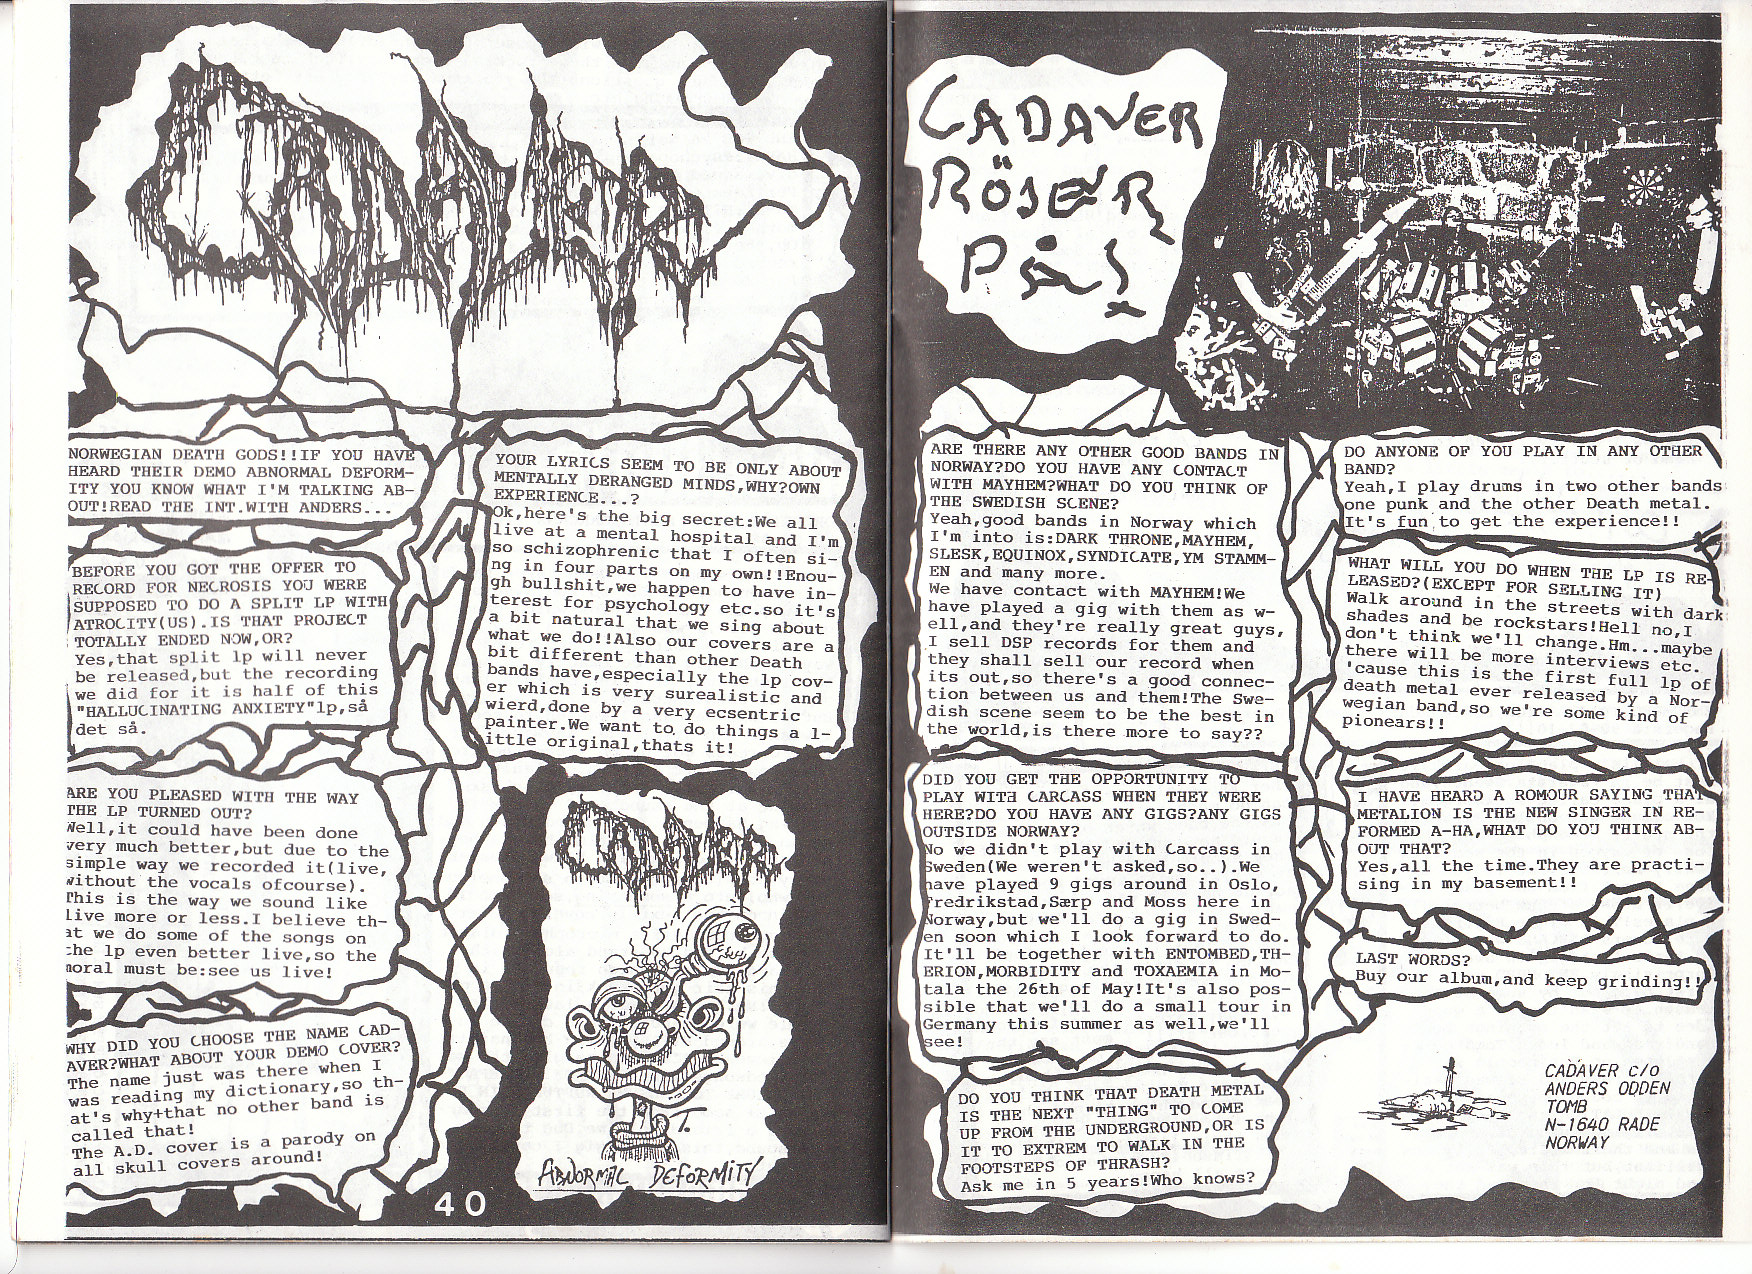 CADAVER
NORWEGIAN DEATH GODS!!IF YOU HAVE
HEARD THEIR DEMO ABNORMAL DEFORM-
ITY YOU KNOW WHAT I'M TALKING AB-
OUT!READ THE INT.WITH ANDERS...
BEFORE YOU GOT THE OFFER TO
RECORD FOR NECROSIS YOU WERE
SUPPOSED TO DO A SPLIT LP WITH
ATROCITY(US).IS THAT PROJECT
TOTALLY ENDED NOW,OR?
Yes,that split lp will never
be released,but the recording
we did for it is half of this
"HALLUCINATING ANXIETY"lp,så
det så.
ARE YOU PLEASED WITH THE WAY
THE LP TURNED OUT?
Well,it could have been done
very much better,but due to the
simple way we recorded it(live,
without the vocals ofcourse).
This is the way we sound like
live more or less.I believe th-
at we do some of the songs on
the lp even better live,so the
moral must be:see us live!
WHY DID YOU CHOOSE THE NAME CAD-
AVER?WHAT ABOUT YOUR DEMO COVER?
The name just was there when I
was reading my dictionary,so th-
at's why+that no other band is
called that!
The A.D. cover is a parody on
all skull covers around!
YOUR LYRICS SEEM TO BE ONLY ABOUT
MENTALLY DERANGED MINDS,WHY?OWN
EXPERIENCE...?
Ok,here's the big secret:We all
live at a mental hospital and I'm
so schizophrenic that I often si-
ng in four parts on my own!!Enou-
gh bullshit,we happen to have in-
terest for psychology etc.so it's
a bit natural that we sing about
what we do!!Also our covers are a
bit different than other Death
bands have,especially the lp cov-
er which is very surealistic and
wierd,done by a very ecsentric
painter.We want to do things a l-
ittle original,thats it!
CADAVER
T.
ABNORMAL DEFORMITY
40
CADAVER
RÖSER
PÅ!
ARE THERE ANY OTHER GOOD BANDS IN
NORWAY?DO YOU HAVE ANY CONTACT
WITH MAYHEM?WHAT DO YOU THINK OF
THE SWEDISH SCENE?
Yeah,good bands in Norway which
I'm into is:DARK THRONE,MAYHEM,
SLESK,EQUINOX,SYNDICATE,YM STAMM-
EN and many more.
We have contact with MAYHEM!We
have played a gig with them as w-
ell,and they're really great guys,
I sell DSP records for them and
they shall sell our record when
its out,so there's a good connec-
tion between us and them!The Swe-
dish scene seem to be the best in
the world,is there more to say??
DID YOU GET THE OPPORTUNITY TO
PLAY WITH CARCASS WHEN THEY WERE
HERE?DO YOU HAVE ANY GIGS?ANY GIGS
OUTSIDE NORWAY?
No we didn't play with Carcass in
Sweden(We weren't asked,so..).We
have played 9 gigs around in Oslo,
Fredrikstad,Særp and Moss here in
Norway,but we'll do a gig in Swed-
en soon which I look forward to do.
It'll be together with ENTOMBED,TH-
ERION,MORBIDITY and TOXAEMIA in Mo-
tala the 26th of May!It's also pos-
sible that we'll do a small tour in
Germany this summer as well,we'll
see!
DO YOU THINK THAT DEATH METAL
IS THE NEXT "THING" TO COME
UP FROM THE UNDERGROUND,OR IS
IT TO EXTREM TO WALK IN THE
FOOTSTEPS OF THRASH?
Ask me in 5 years!Who knows?
DO ANYONE OF YOU PLAY IN ANY OTHER
BAND?
Yeah,I play drums in two other bands
one punk and the other Death metal.
It's fun to get the experience!!
WHAT WILL YOU DO WHEN THE LP IS RE-
LEASED?(EXCEPT FOR SELLING IT)
Walk around in the streets with dark
shades and be rockstars!Hell no,I
don't think we'll change.Hm...maybe
there will be more interviews etc.
'cause this is the first full lp of
death metal ever released by a Nor-
wegian band,so we're some kind of
pionears!!
I HAVE HEARD A ROMOUR SAYING THAT
METALION IS THE NEW SINGER IN RE-
FORMED A-HA,WHAT DO YOU THINK AB-
OUT THAT?
Yes,all the time.They are practi-
sing in my basement!!
LAST WORDS?
Buy our album,and keep grinding!!
CADAVER c/o
ANDERS ODDEN
TOMB
N-1640 RADE
NORWAY